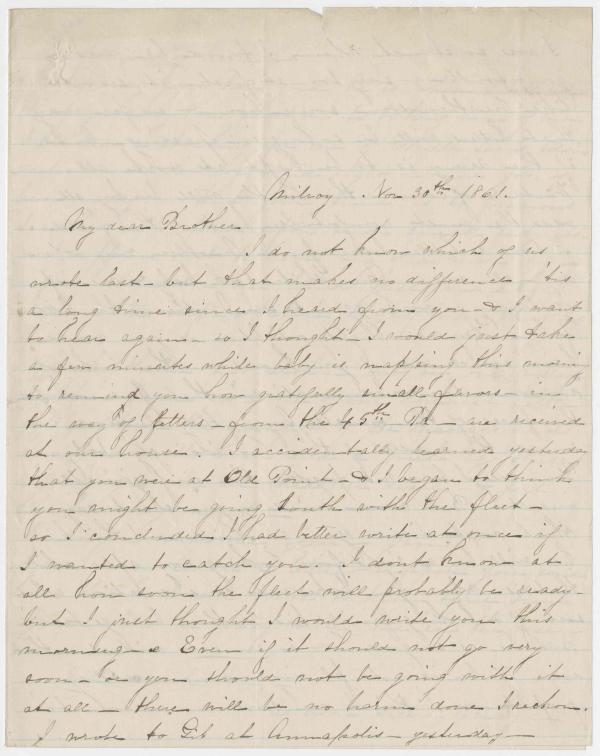 Milroy Nov 30th 1861.
My dear Brother
I do not know which of us
wrote last - but that makes no difference - 'tis
a long time since I heard from you - & I want
to hear again - so I thought - I would just take
a few minutes while baby is napping this morning
to remind you how gratefully small favors - in
the way of letters - from the 45th Pa - are received
at our house. I accidentally learned yesterday
that you were at Old Point - & I began to think
you might be going South with the fleet -
so I concluded I had better write at once if
I wanted to catch you. I dont know at
all how soon the fleet will probably be ready -
but I just thought I would write you this
morning - & Even if it should not go very
soon - or you should not be going with it
at all - there will be no harm done I reckon.
I wrote to at Annapolis - yesterday -